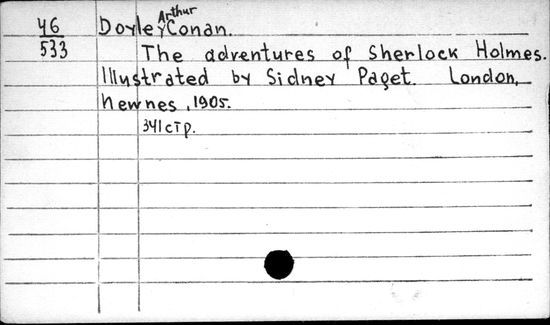 46 Doyle, Arthur Conan.
533 The adventures of Sherlock Holmes.
Illustrated by Sidney Paget. London,
Newnes, 1905.
341 стр.